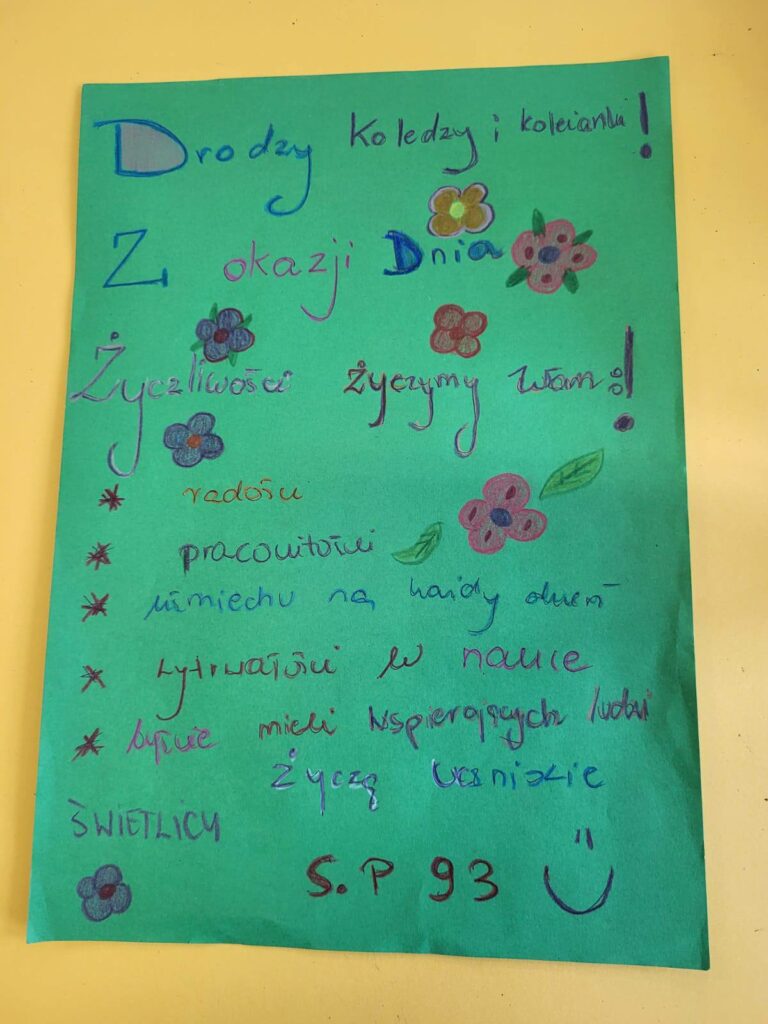 Drodzy Koledzy i koleianki!
Z okazji Dnia
Życzliwości życzymy Wam:!
radości
pracowitości
uśmiechu na każdy dzień
wytrwałości w nauce
byście mieli wspierających ludzi
Życzą uczniowie
ŚWIETLICY
S.P 93